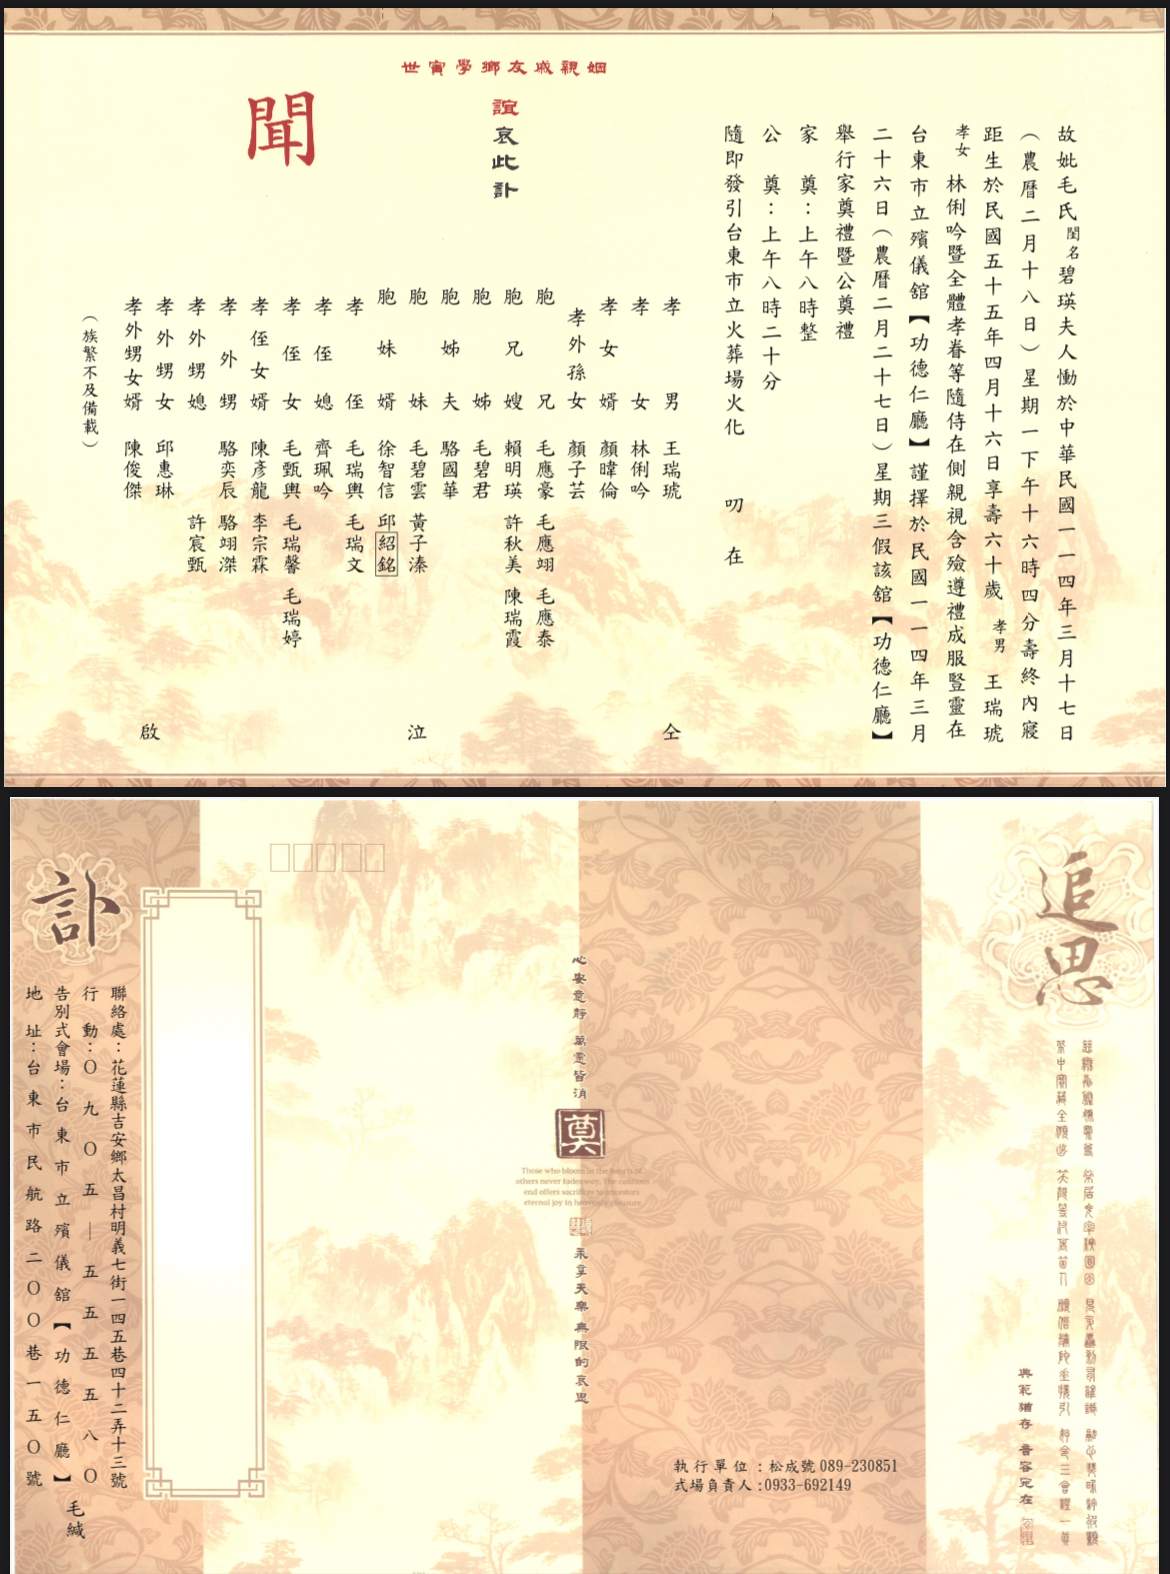 故妣毛氏閨名碧瑛夫人慟於中華民國一一四年三月十七日
（農曆二月十八日）星期一下午十六時四分壽終內寢
距生於民國五十五年四月十六日享壽六十歲 孝男 王瑞琥
孝女 林俐吟暨全體孝眷等隨侍在側親視含殮遵禮成服豎靈在
台東市立殯儀舘【功德仁廳】謹擇於民國一一四年三月
二十六日（農曆二月二十七日）星期三假該舘【功德仁廳】
舉行家奠禮暨公奠禮
家 奠：上午八時整
公 奠：上午八時二十分
隨即發引台東市立火葬場火化 叨 在
姻親戚友鄉學寅世
誼哀此訃
聞
孝男 王瑞琥
孝女 林俐吟
孝女婿 顏暐倫
孝外孫女 顏子芸
胞兄 毛應豪 毛應翊 毛應泰
胞兄嫂 賴明瑛 許秋美 陳瑞霞
胞姊 毛碧君
胞姊夫 駱國華
胞妹 毛碧雲 黃子溱
胞妹婿 徐智信 邱紹銘
孝侄 毛瑞輿 毛瑞文
孝侄媳 齊珮吟
孝侄女 毛甄輿 毛瑞馨 毛瑞婷
孝侄女婿 陳彥龍 李宗霖
孝外甥 駱奕辰 駱翊滐
孝外甥媳 許宸甄
孝外甥女 邱惠琳
孝外甥女婿 陳俊傑
（族繁不及備載）
仝 泣 啟
追思
典範猶存 音容宛在
執行單位：松成號 089-230851
式場負責人:0933-692149
心安意靜 萬憂皆消
奠
Those who bloom in the hearts of
others never fade away. The cautious
end offers sacrifices to ancestors
eternal joy in heavenly pleasure
永享天樂 無限的哀思
訃
聯絡處：花蓮縣吉安鄉太昌村明義七街一四五巷四十二弄十三號
行動：〇九〇五—五五五五八〇
告別式會場：台東市立殯儀舘【功德仁廳】
地址：台東市民航路二〇〇巷一五〇號
毛緘